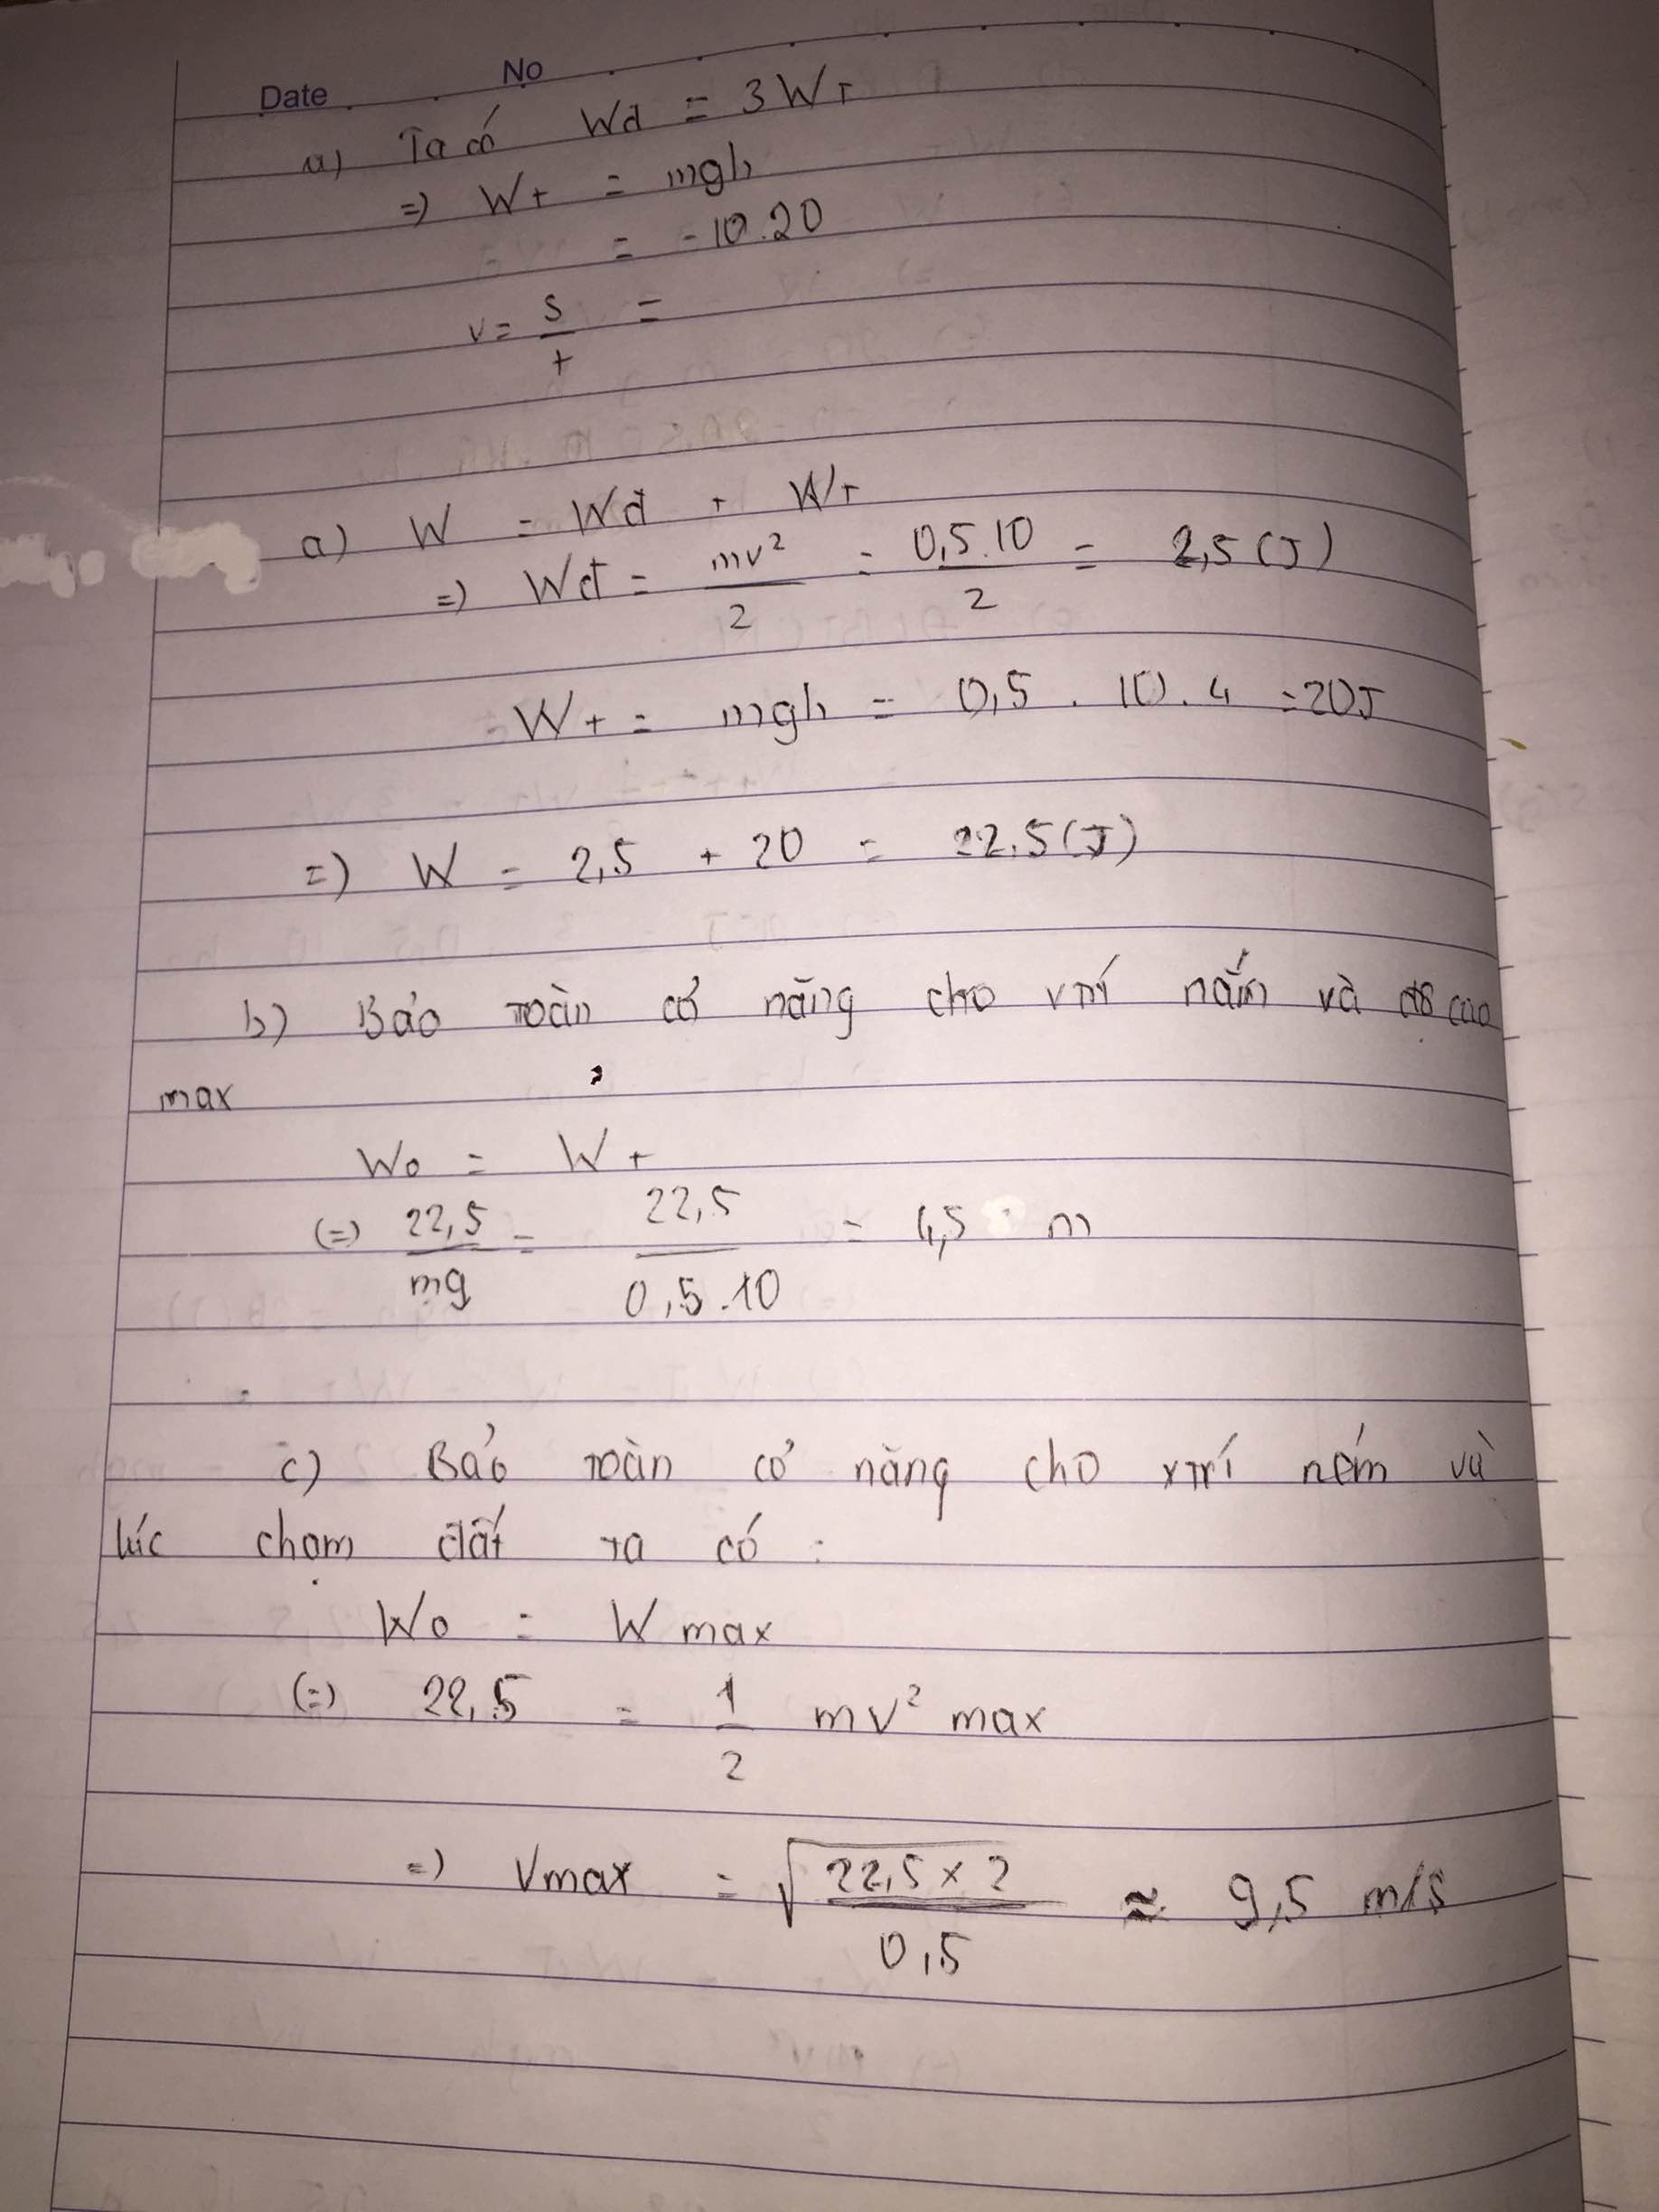 Date No
a) Ta có Wđ = 3Wt
=) Wt = mgh
= -10.20
v = s/t =
a) W = Wđ + Wt
=) Wđ = mv²/2 = 0,5.10/2 = 2,5(J)
= Wt = mgh = 0,5 . 10 . 4 = 20J
=) W = 2,5 + 20 = 22,5(J)
b) Bảo toàn cơ năng cho vtrí nắm và độ cao
max
Wo = Wt
(=) 22,5/mg = 22,5/0,5.10 = 4,5 m
c) Bảo toàn cơ năng cho vtrí ném và
lúc chạm đất ta có :
Wo = W max
(=) 22,5 = 1/2 mv² max
=) Vmax = √(22,5 x 2/0,5) ≈ 9,5 m/s